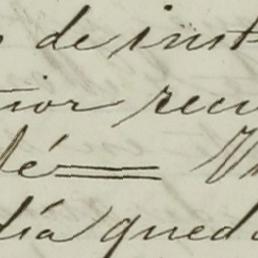 de inst
rior recu
lé == V
día qued